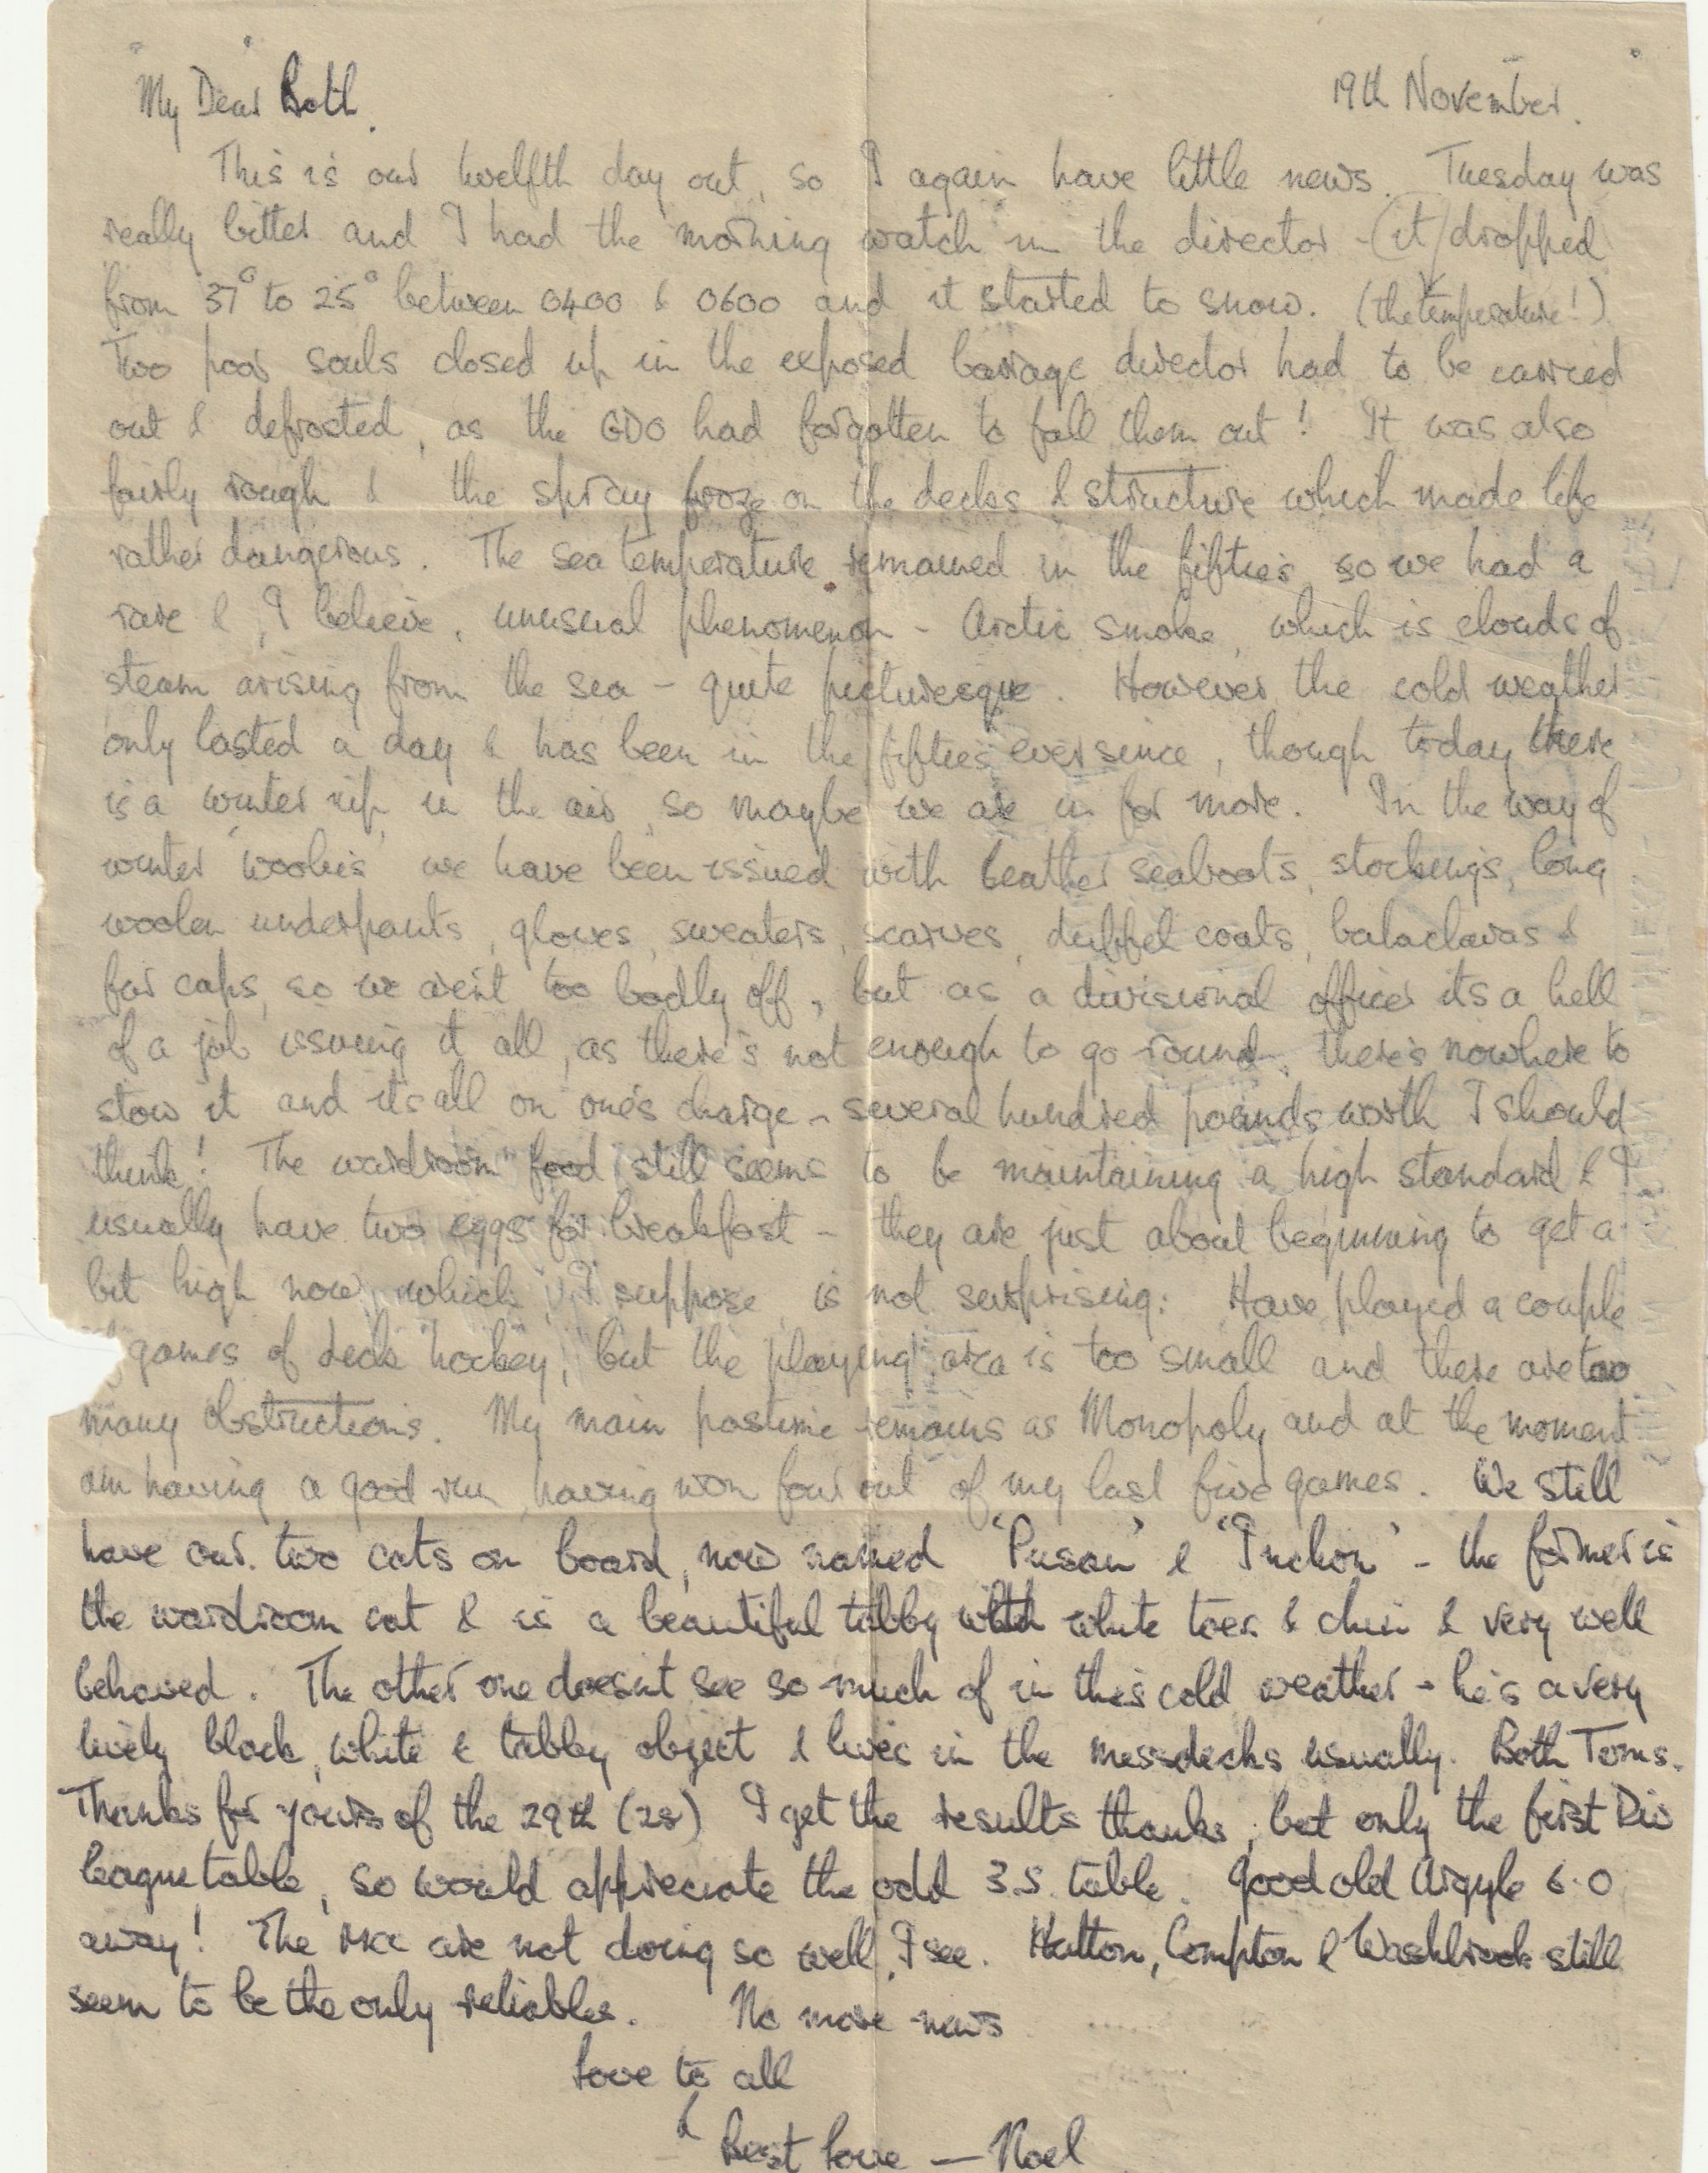 My Dear Both. 19th November.
This is our twelfth day out, so I again have little news. Tuesday was
really bitter and I had the morning watch in the director - (it) dropped
from 37° to 25° between 0400 & 0600 and it started to snow. (the temperature!)
Two poor souls closed up in the exposed barrage director had to be carried
out & defrosted, as the GDO had forgotten to fall them out! It was also
fairly rough & the spray froze on the decks & structure which made life
rather dangerous. The sea temperature remained in the fifties, so we had a
rare &, I believe, unusual phenomenon - Arctic smoke, which is clouds of
steam arising from the sea - quite picturesque. However the cold weather
only lasted a day & has been in the fifties ever since, though today there
is a winter nip in the air, so maybe we are in for more. In the way of
winter 'woolies' we have been issued with leather seaboots, stockings, long
woolen underpants, gloves, sweaters, scarves, duffel coats, balaclavas &
fur caps, so we aren't too badly off, but as a divisional officer its a hell
of a job issuing it all, as there's not enough to go round, there's nowhere to
stow it and its all on one's charge - several hundred pounds worth I should
think! The wardroom food still seems to be maintaining a high standard & I
usually have two eggs for breakfast - they are just about beginning to get a
bit high now, which, I suppose, is not surprising. Have played a couple
games of deck hockey, but the playing area is too small and there are too
many obstructions. My main pastime remains as Monopoly and at the moment
am having a good run, having won four out of my last five games. We still
have our two cats on board, now named 'Pusan' & 'Inchon' - the former is
the wardroom cat & is a beautiful tabby with white toes & chin & very well
behaved. The other one doesn't see so much of in this cold weather - he's a very
lively black, white & tabby object & lives in the messdecks usually. Both Toms.
Thanks for yours of the 29th (28) I get the results thanks, but only the first Div
league table, so would appreciate the odd 3.S. table. Good old Argyle 6-0
away! The MCC are not doing so well, I see. Hutton, Compton & Washbrook still
seem to be the only reliables. No more news
Love to all
&
Best love — Noel